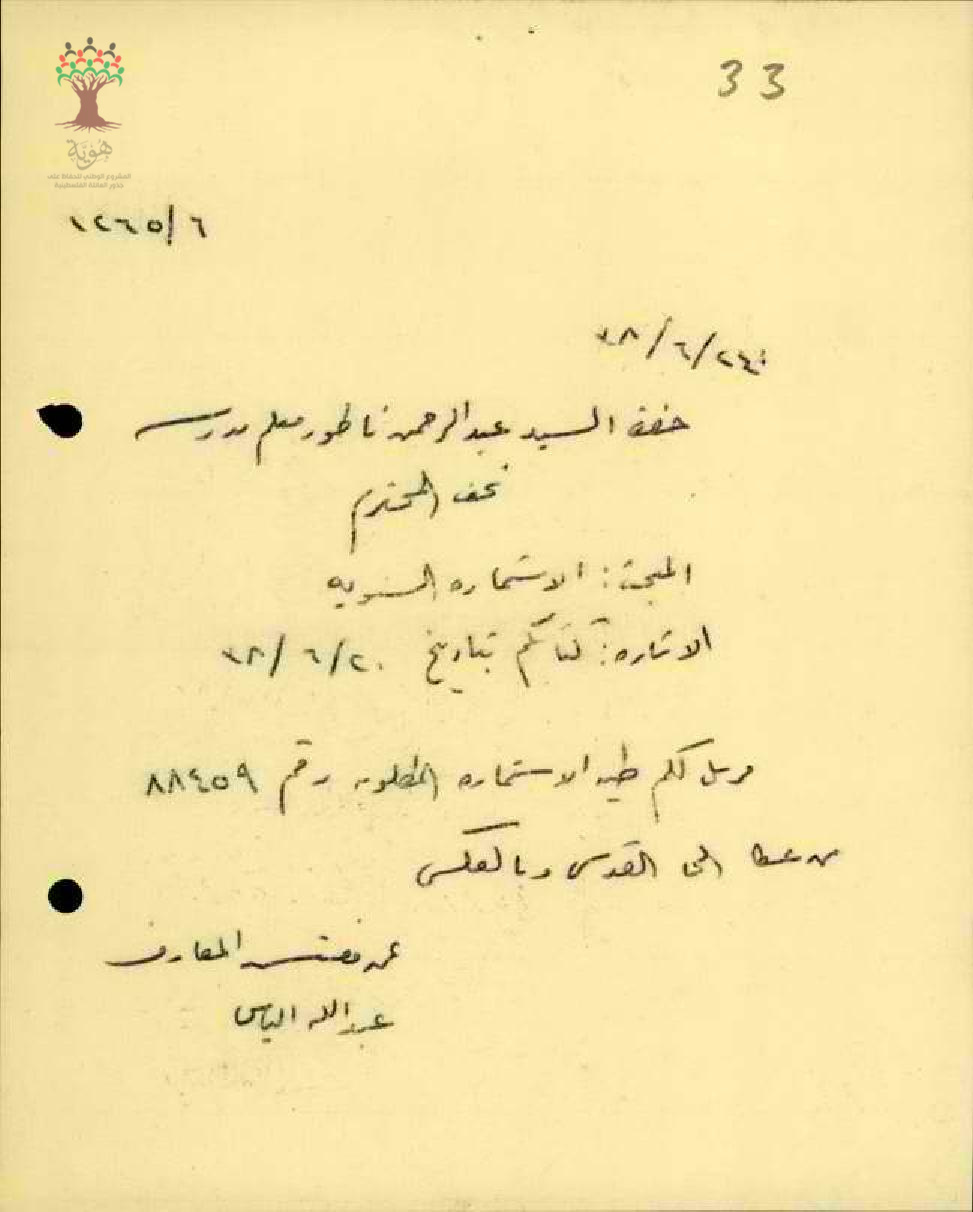 33
هُوِيَّة
المشروع الوطني للحفاظ على
جذور العائلة الفلسطينية
١٢٦٥/٦
٣٨/٦/٢٤
حضرة السيد عبدالرحمن ناطور معلم مدرسة
نحف المحترم
المبحث: الاستماره السنويه
الاشاره: كتابكم بتاريخ ٣٨/٦/٢٠
مرسل لكم طيه الاستماره المطلوبه رقم ٨٨٤٥٩
من عكا الى القدس وبالعكس
عن مفتش المعارف
عبدالله الياس